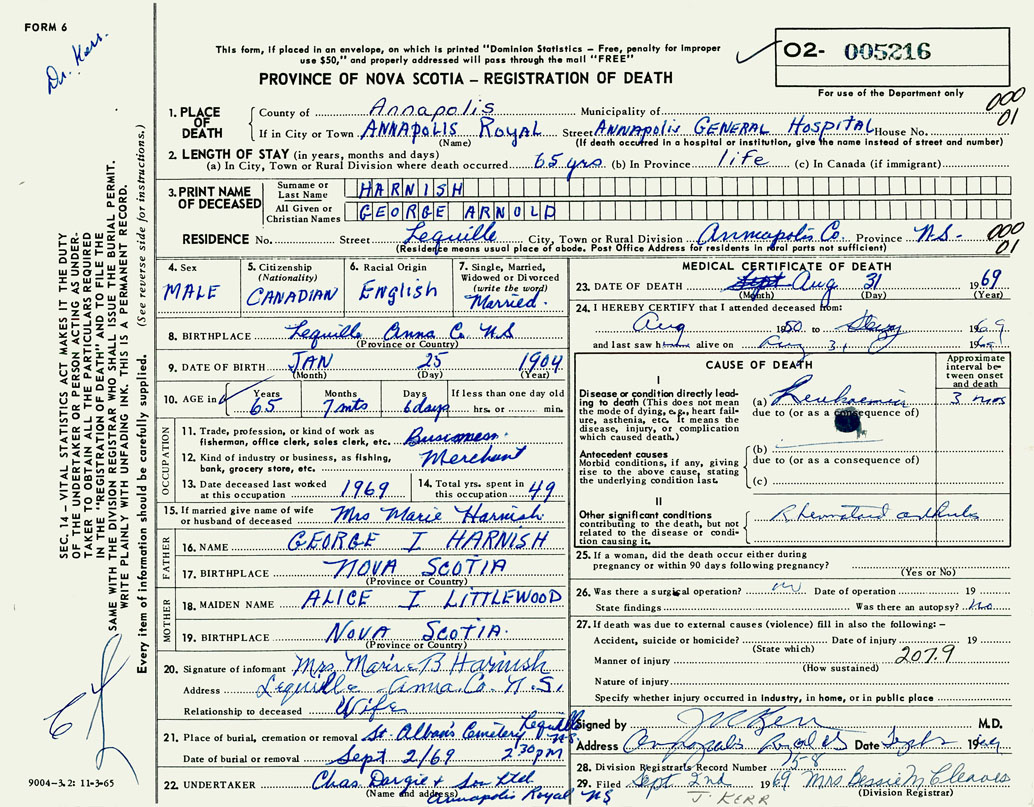 FORM 6
Dr. Kerr.
This form, if placed in an envelope, on which is printed "Dominion Statistics – Free, penalty for improper
use $50," and properly addressed will pass through the mail "FREE"
PROVINCE OF NOVA SCOTIA – REGISTRATION OF DEATH
O2- 005216
For use of the Department only
000
01
1. PLACE OF DEATH
County of Annapolis Municipality of
If in City or Town ANNAPOLIS ROYAL Street ANNAPOLIS GENERAL HOSPITAL House No.
(Name) (If death occurred in a hospital or institution, give the name instead of street and number)
2. LENGTH OF STAY (in years, months and days)
(a) In City, Town or Rural Division where death occurred 65 yrs (b) In Province life (c) In Canada (if immigrant)
3. PRINT NAME OF DECEASED
Surname or Last Name HARNISH
All Given or Christian Names GEORGE ARNOLD
RESIDENCE No. Street Lequille City, Town or Rural Division Annapolis Co. Province N.S.
(Residence means usual place of abode. Post Office Address for residents in rural parts not sufficient)
000
01
4. Sex
MALE
5. Citizenship
(Nationality)
CANADIAN
6. Racial Origin
English
7. Single, Married,
Widowed or Divorced
(write the word)
Married.
8. BIRTHPLACE Lequille Anna Co NS
(Province or Country)
9. DATE OF BIRTH JAN 25 1904
(Month) (Day) (Year)
10. AGE in Years 65 Months 7 mts Days 6 days If less than one day old
hrs. or min.
OCCUPATION
11. Trade, profession, or kind of work as
fisherman, office clerk, sales clerk, etc. Business
12. Kind of industry or business, as fishing,
bank, grocery store, etc. Merchant
13. Date deceased last worked
at this occupation 1969
14. Total yrs. spent in
this occupation 49
15. If married give name of wife
or husband of deceased Mrs Marie Harnish
FATHER
16. NAME GEORGE I HARNISH
17. BIRTHPLACE NOVA SCOTIA
(Province or Country)
MOTHER
18. MAIDEN NAME ALICE I LITTLEWOOD
19. BIRTHPLACE NOVA SCOTIA.
(Province or Country)
20. Signature of informant Mrs Marie B Harnish
Address Lequille Anna. Co. N.S.
Relationship to deceased Wife
21. Place of burial, cremation or removal St. Alban's Cemetery Lequille N.S.
Date of burial or removal Sept 2/69 2:30 PM
22. UNDERTAKER Chas. Dargie & Son Ltd
(Name and address) Annapolis Royal NS
MEDICAL CERTIFICATE OF DEATH
23. DATE OF DEATH Sept Aug 31 1969
(Month) (Day) (Year)
24. I HEREBY CERTIFY that I attended deceased from:
Aug 1950 to 1969
and last saw h alive on Aug 31 19
CAUSE OF DEATH
Approximate
interval be-
tween onset
and death
I
Disease or condition directly lead-
ing to death (This does not mean
the mode of dying, e.g., heart fail-
ure, asthenia, etc. It means the
disease, injury, or complication
which caused death.)
(a) Leukaemia 3 mos
due to (or as a consequence of)
Antecedent causes
Morbid conditions, if any, giving
rise to the above cause, stating
the underlying condition last.
(b)
due to (or as a consequence of)
(c)
II
Other significant conditions
contributing to the death, but not
related to the disease or condi-
tion causing it.
Rheumatoid arthritis
25. If a woman, did the death occur either during
pregnancy or within 90 days following pregnancy?
(Yes or No)
26. Was there a surgical operation? no Date of operation 19
State findings Was there an autopsy? no
27. If death was due to external causes (violence) fill in also the following: –
Accident, suicide or homicide? Date of injury 19
(State which)
207.9
Manner of injury
(How sustained)
Nature of injury
Specify whether injury occurred in industry, in home, or in public place
Signed by J Kerr M.D.
Address Annapolis Royal NS Date Sept 1969
28. Division Registrar's Record Number 758
29. Filed Sept 2nd 1969 Mrs Bessie M Cleaves
(Division Registrar)
J. KERR
SEC. 14 – VITAL STATISTICS ACT MAKES IT THE DUTY
OF THE UNDERTAKER OR PERSON ACTING AS UNDER-
TAKER TO OBTAIN ALL THE PARTICULARS REQUIRED
IN THE "REGISTRATION OF DEATH" AND TO FILE THE
SAME WITH THE DIVISION REGISTRAR WHO SHALL ISSUE THE BURIAL PERMIT.
WRITE PLAINLY WITH UNFADING INK. THIS IS A PERMANENT RECORD.
Every item of information should be carefully supplied. (See reverse side for instructions.)
9004-3.2: 11-3-65